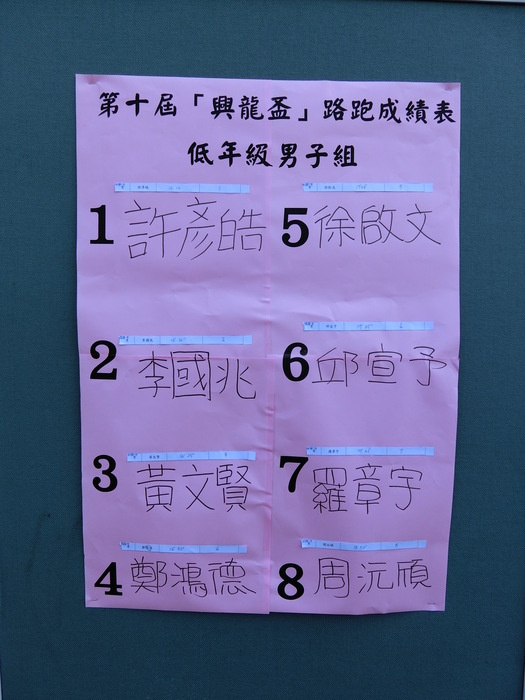 第十屆「興龍盃」路跑成績表
低年級男子組
1 許彥皓
2 李國兆
3 黃文賢
4 鄭鴻德
5 徐啟文
6 邱宣予
7 羅章宇
8 周沅頎